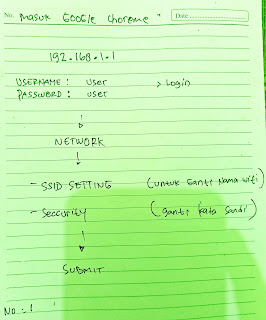 No. Masuk Google Choreme Date
192.168.1.1
USERNAME : user > Login
PASSWORD : user
↓
NETWORK
↓
- SSID SETTING (untuk Ganti Nama wifi)
- Seccurity (ganti kata Sandi)
↓
SUBMIT
No : 1